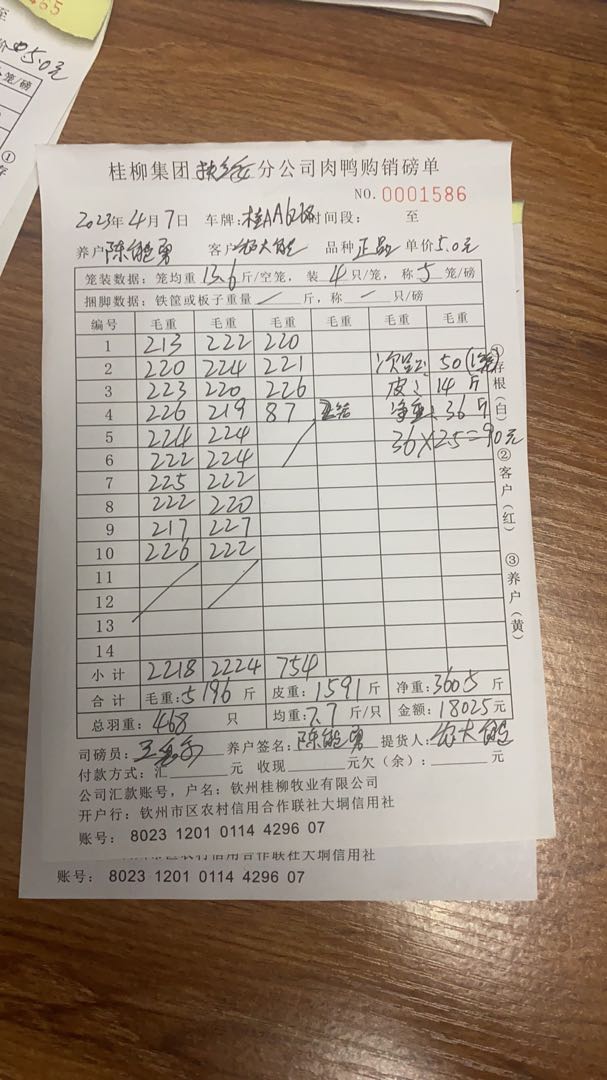 465
5.0元
笼/磅
①
桂柳集团 分公司肉鸭购销磅单
NO. 0001586
2023年4月7日 车牌:桂AA 时间段: 至
养户陈能勇 客户 大 品种正品 单价5.0元
笼装数据: 笼均重13.6斤/空笼, 装4只/笼, 称5笼/磅
捆脚数据: 铁筐或板子重量/斤, 称/只/磅
编号 毛重 毛重 毛重 毛重 毛重 毛重
1 213 222 220
2 220 224 221 次品: 50
3 223 220 226 皮: 14斤
4 226 219 87 净重: 36斤
5 224 224 36×2.5=90元
6 222 224
7 225 222
8 222 220
9 217 227
10 226 222
11
12
13
14
小计 2218 2224 754
合计 毛重:5196斤 皮重:1591斤 净重:3605斤
总羽重:468只 均重:7.7斤/只 金额:18025元
①存根(白) ②客户(红) ③养户(黄)
司磅员: 养户签名:陈能勇 提货人: 大
付款方式: 汇 元 收现 元欠(余): 元
公司汇款账号, 户名: 钦州桂柳牧业有限公司
开户行: 钦州市区农村信用合作联社大垌信用社
账号: 8023 1201 0114 4296 07
农村信用合作联社大垌信用社
账号: 8023 1201 0114 4296 07